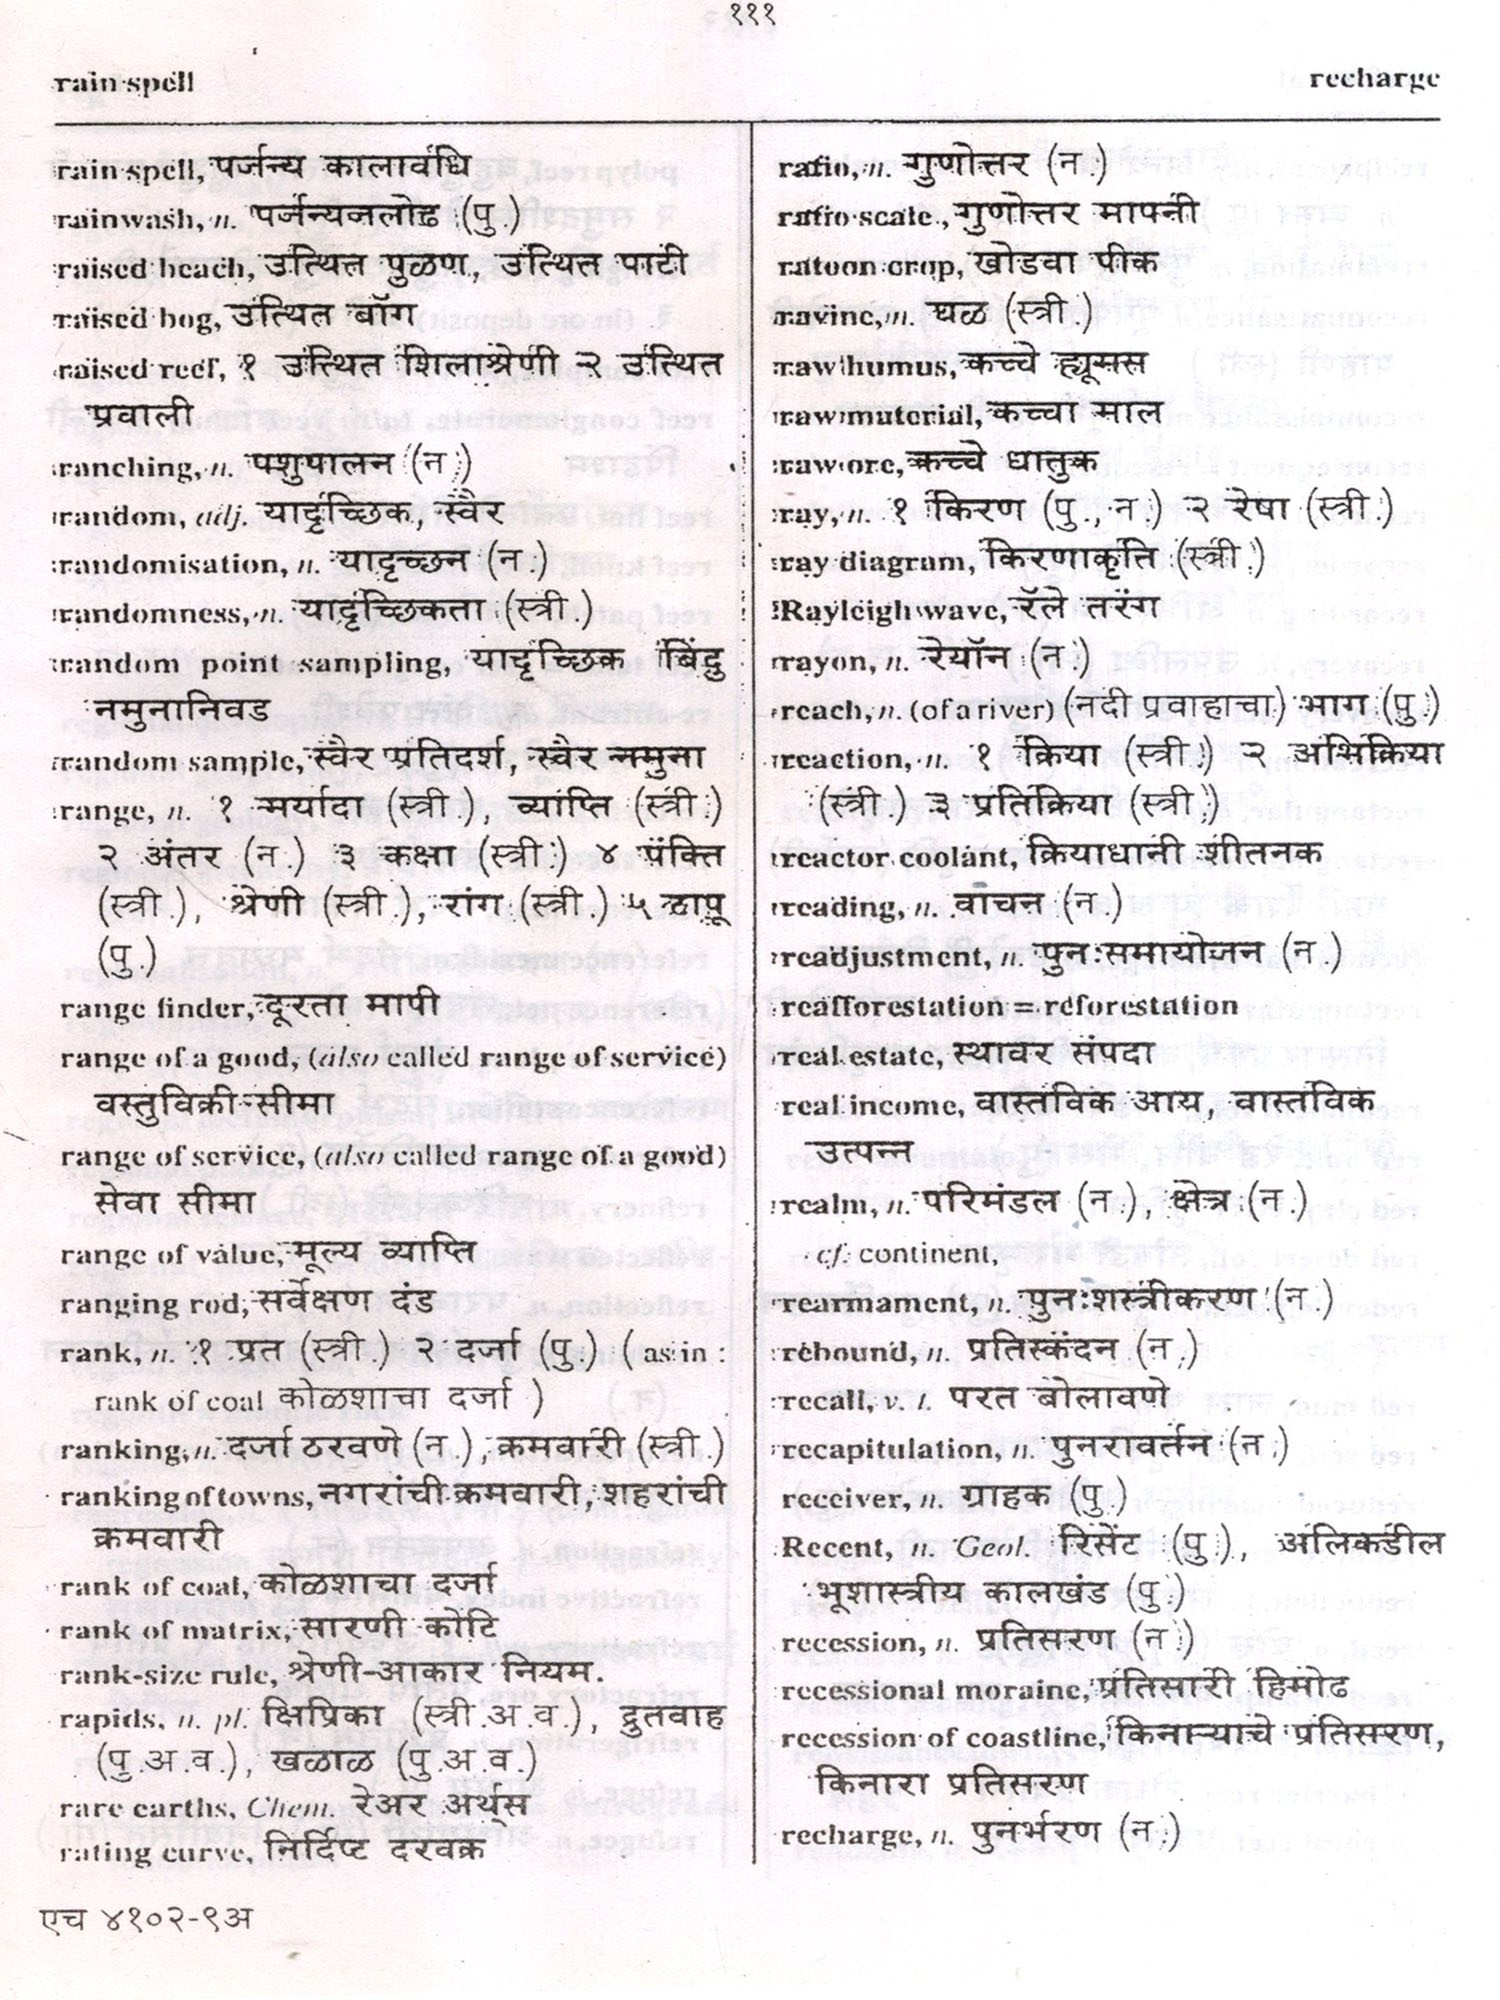 १११
rain spell
recharge
rain spell, पर्जन्य कालावधि
rainwash, n. पर्जन्यजलोढ (पु.)
raised beach, उत्थित पुळण, उत्थित पाटी
raised bog, उत्थित बॉग
raised reef, १ उत्थित शिलाश्रेणी २ उत्थित
प्रवाली
ranching, n. पशुपालन (न.)
random, adj. यादृच्छिक, स्वैर
randomisation, n. यादृच्छन (न.)
randomness, n. यादृच्छिकता (स्त्री.)
random point sampling, यादृच्छिक बिंदु
नमुनानिवड
random sample, स्वैर प्रतिदर्श, स्वैर नमुना
range, n. १ मर्यादा (स्त्री.), व्याप्ति (स्त्री.)
२ अंतर (न.) ३ कक्षा (स्त्री.) ४ पंक्ति
(स्त्री.), श्रेणी (स्त्री.), रांग (स्त्री.) ५ टापू
(पु.)
range finder, दूरता मापी
range of a good, (also called range of service)
वस्तुविक्री सीमा
range of service, (also called range of a good)
सेवा सीमा
range of value, मूल्य व्याप्ति
ranging rod, सर्वेक्षण दंड
rank, n. १ प्रत (स्त्री.) २ दर्जा (पु.) (as in :
rank of coal कोळशाचा दर्जा )
ranking, n. दर्जा ठरवणे (न.), क्रमवारी (स्त्री.)
ranking of towns, नगरांची क्रमवारी, शहरांची
क्रमवारी
rank of coal, कोळशाचा दर्जा
rank of matrix, सारणी कोटि
rank-size rule, श्रेणी-आकार नियम.
rapids, n. pl. क्षिप्रिका (स्त्री.अ.व.), द्रुतवाह
(पु.अ.व.), खळाळ (पु.अ.व.)
rare earths, Chem. रेअर अर्थ्स
rating curve, निर्दिष्ट दरवक्र
एच ४१०२-९अ
ratio, n. गुणोत्तर (न.)
ratio scale, गुणोत्तर मापनी
ratoon crop, खोडवा पीक
ravine, n. घळ (स्त्री.)
raw humus, कच्चे ह्यूमस
raw material, कच्चा माल
raw ore, कच्चे धातुक
ray, n. १ किरण (पु., न.) २ रेषा (स्त्री.)
ray diagram, किरणाकृति (स्त्री.)
Rayleigh wave, रॅले तरंग
rayon, n. रेयॉन (न.)
reach, n. (of a river) (नदी प्रवाहाचा) भाग (पु.)
reaction, n. १ क्रिया (स्त्री.) २ अभिक्रिया
(स्त्री.) ३ प्रतिक्रिया (स्त्री.)
reactor coolant, क्रियाधानी शीतनक
reading, n. वाचन (न.)
readjustment, n. पुनःसमायोजन (न.)
reafforestation = reforestation
real estate, स्थावर संपदा
real income, वास्तविक आय, वास्तविक
उत्पन्न
realm, n. परिमंडल (न.), क्षेत्र (न.)
cf. continent,
rearmament, n. पुनःशस्त्रीकरण (न.)
rebound, n. प्रतिस्कंदन (न.)
recall, v. t. परत बोलावणे
recapitulation, n. पुनरावर्तन (न.)
receiver, n. ग्राहक (पु.)
Recent, n. Geol. रिसेंट (पु.), अलिकडील
भूशास्त्रीय कालखंड (पु.)
recession, n. प्रतिसरण (न.)
recessional moraine, प्रतिसारी हिमोढ
recession of coastline, किनाऱ्याचे प्रतिसरण,
किनारा प्रतिसरण
recharge, n. पुनर्भरण (न.)